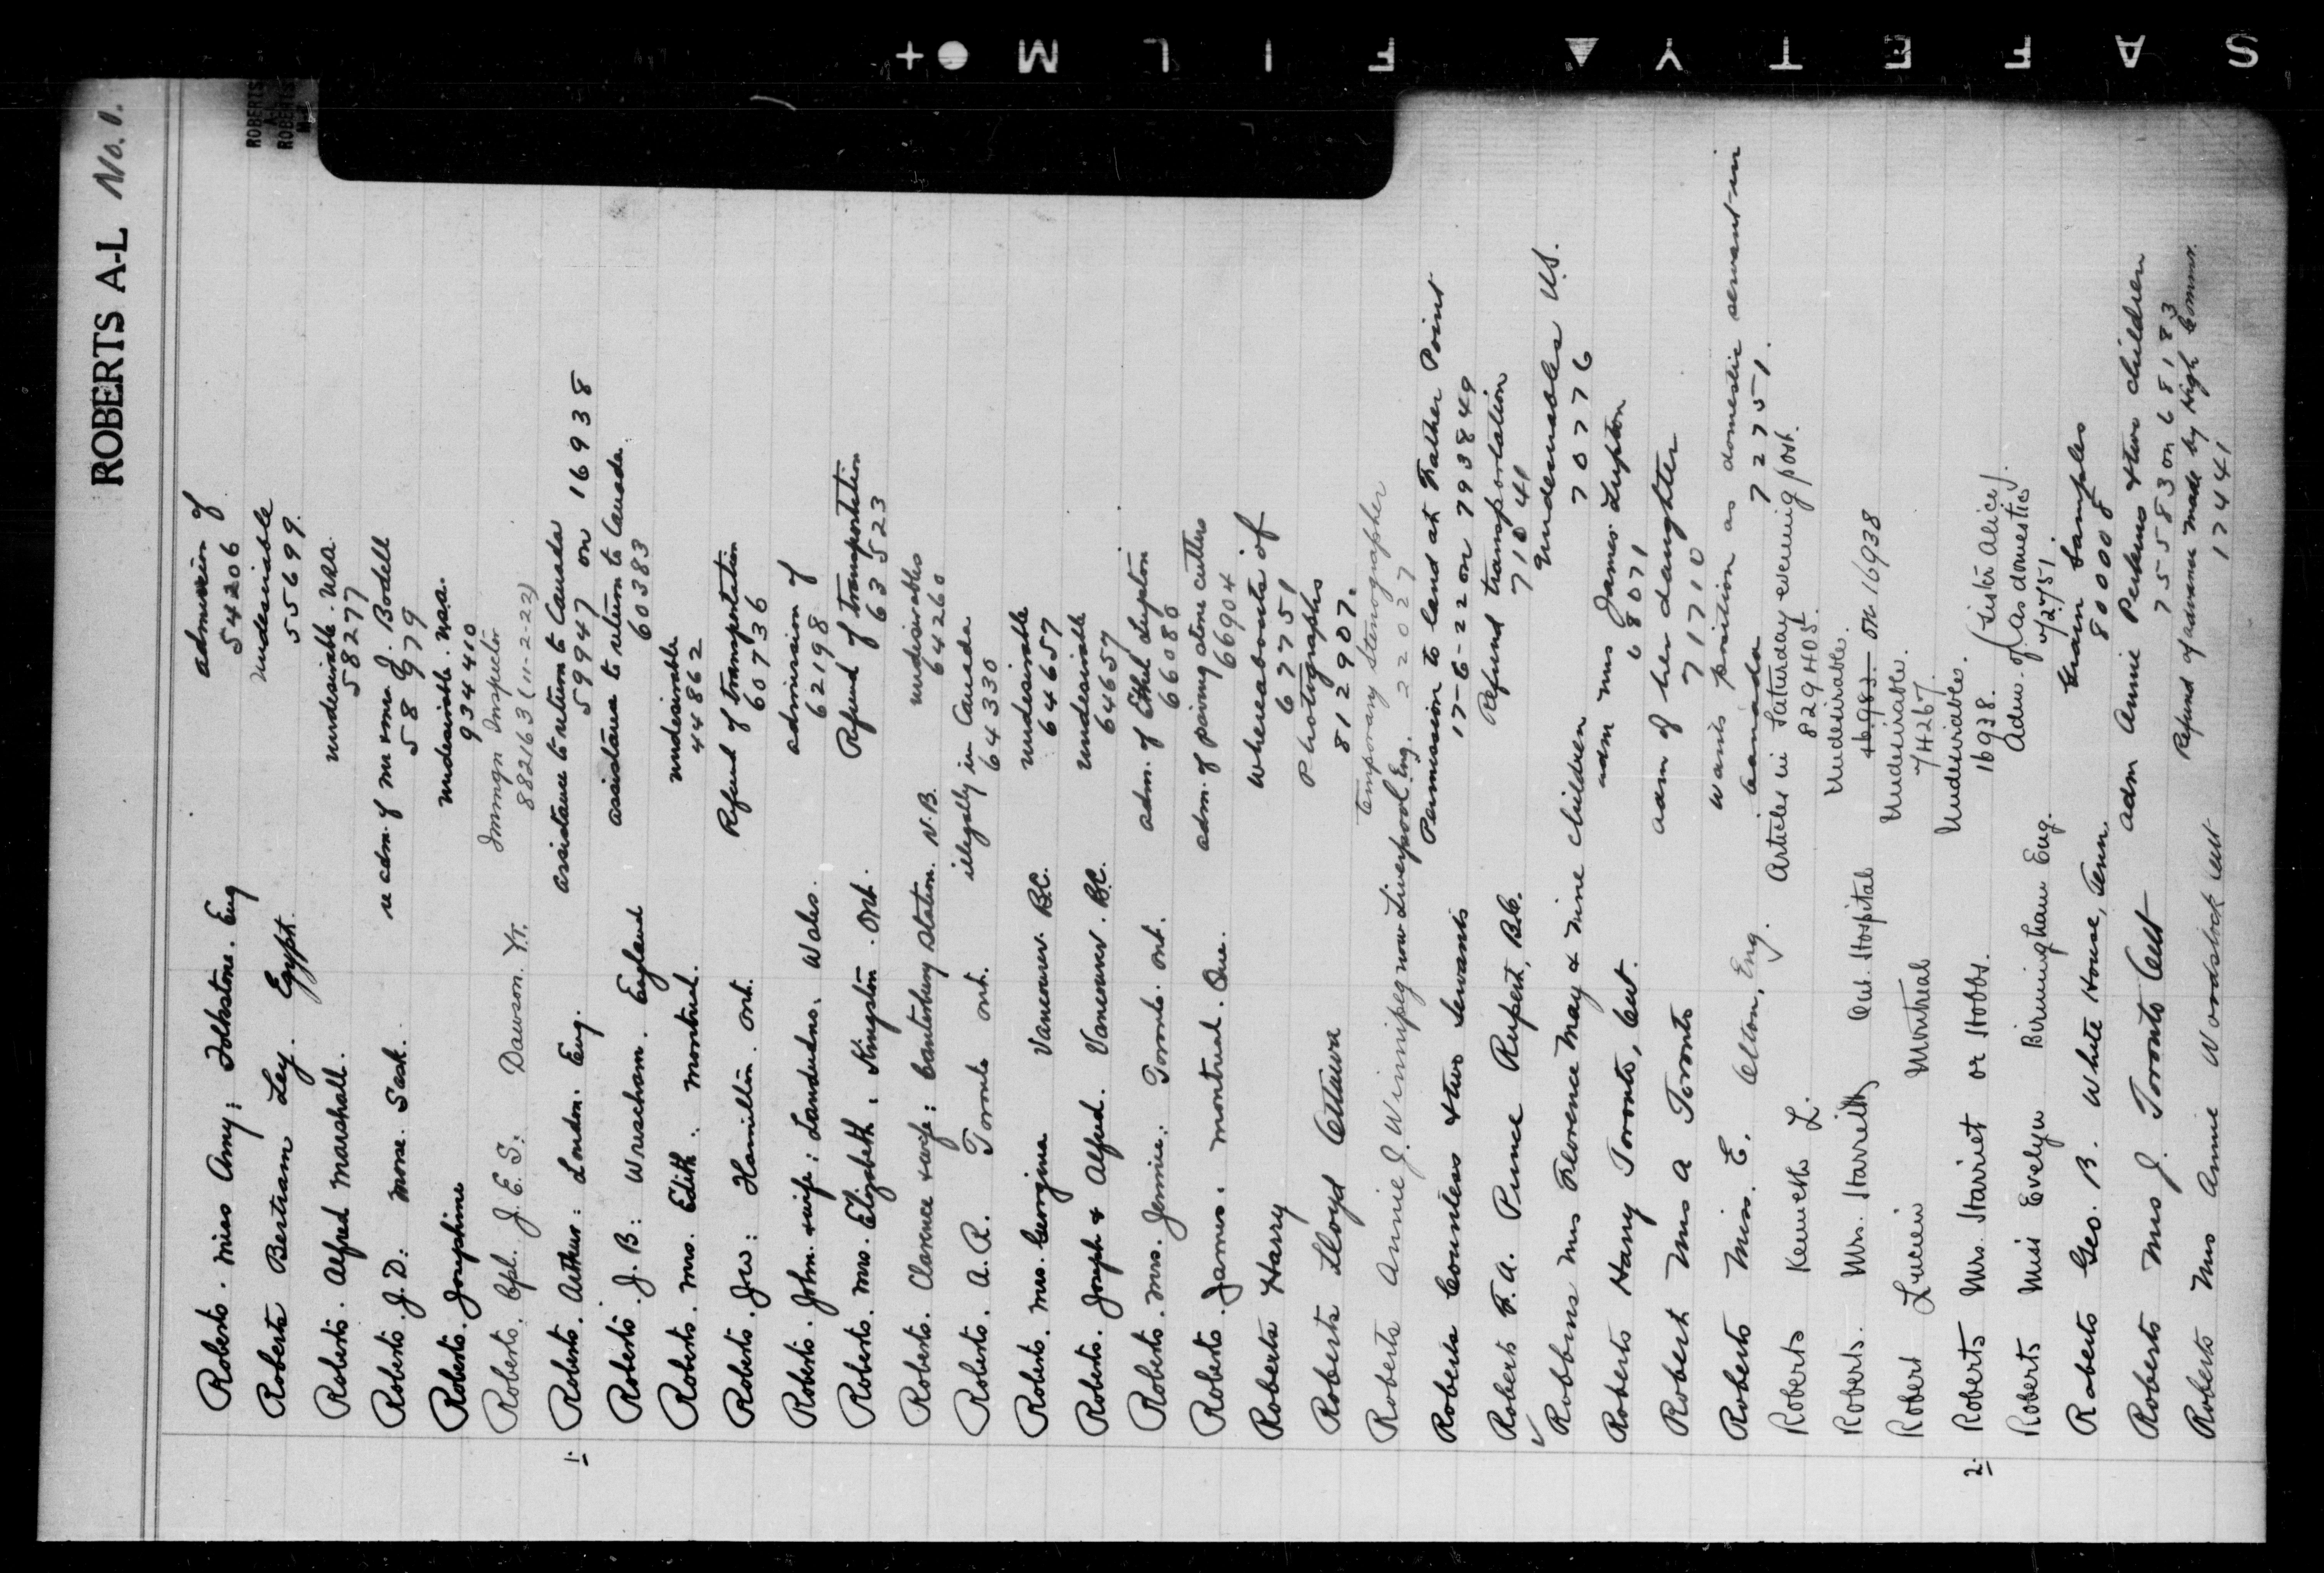 ROBERTS A-L No. 1.
ROBERTS
A-L
ROBERTS
M-Z
Roberts. Miss Amy: Folkstone. Eng admission of
54206
Roberts Bertram Ley. Egypt. undesirable
55699.
Roberts. Alfred Marshall. undesirable. USA.
58277
Roberts. J. D: Morse. Sask. re adm. of Mr J. Bodell
58979
Roberts. Josephine undesirable. USA.
934410
Roberts. Cpl. J. E. S: Dawson. Y.T. Immgn Inspector
882163 (11-2-22)
1. Roberts. Arthur: London. Eng. assistance to return to Canada
59947 on 16938
Roberts. J. B: Wrescham. England assistance to return to Canada.
60383
Roberts. Mrs. Edith. Montreal. undesirable
44862
Roberts. J W: Hamilton. Ont. Refund of transportation
60736
Roberts. John & wife: Landudno. Wales. admission of
62198
Roberts. Mrs. Elizabeth. Kingston. Ont. Refund of transportation
63523
Roberts. Clarence & wife: Canterbury Station. N.B. undesirables
64260
Roberts. A. R. Toronto Ont. illegally in Canada
64330
Roberts. Mrs. Georgina Vancouver. B.C. undesirable
64657
Roberts. Joseph & Alfred. Vancouver. B.C. undesirable
64657
Roberts. Mrs. Jennie: Toronto. Ont. adm. of Ethel Lupton
66080
Roberts. James. Montreal. Que. adm. of paving stone cutters
66904
Roberts Harry whereabouts of
67751
Roberts Lloyd Ottawa Photographs
812907.
Roberts Annie J. Winnipeg now Liverpool Eng. temporary stenographer
22027
Roberts Countess & two servants Permission to land at Father Point
17-6-22 on 793849
Roberts F. A. Prince Rupert, B.C. Refund transportation
71041
✓ Robbins Mrs Florence May & nine children Undesirables U.S.
70776
Roberts Harry Toronto, Ont. adm Mrs James Lupton
68071
Robert Mrs A Toronto adm of her daughter
71710
Roberts Miss. E. Olton, Eng. wants position as domestic servant in
Canada 72751.
Roberts Kenneth L. Articles in Saturday evening post.
829405.
Roberts. Mrs. Starrett Ont. Hospital Undesirable.
16983. on 16938
Robert Lucien Montreal Undesirable.
74267.
2. Roberts Mrs. Starriet or Stobbs. Undesirables.
16938.
Roberts Miss Evelyn Birmingham Eng. Adm. of (Sister Alice)
as domestics
72751.
Roberts Geo. B. White House, Tenn. Grain Samples
800008
Roberts Mrs J. Toronto Ont adm Annie Perkins & two children
755583 on 68183
Roberts Mrs Annie Woodstock Ont Refund of advance made by High Commr.
17441
SAFETY ▲ FILM ●+